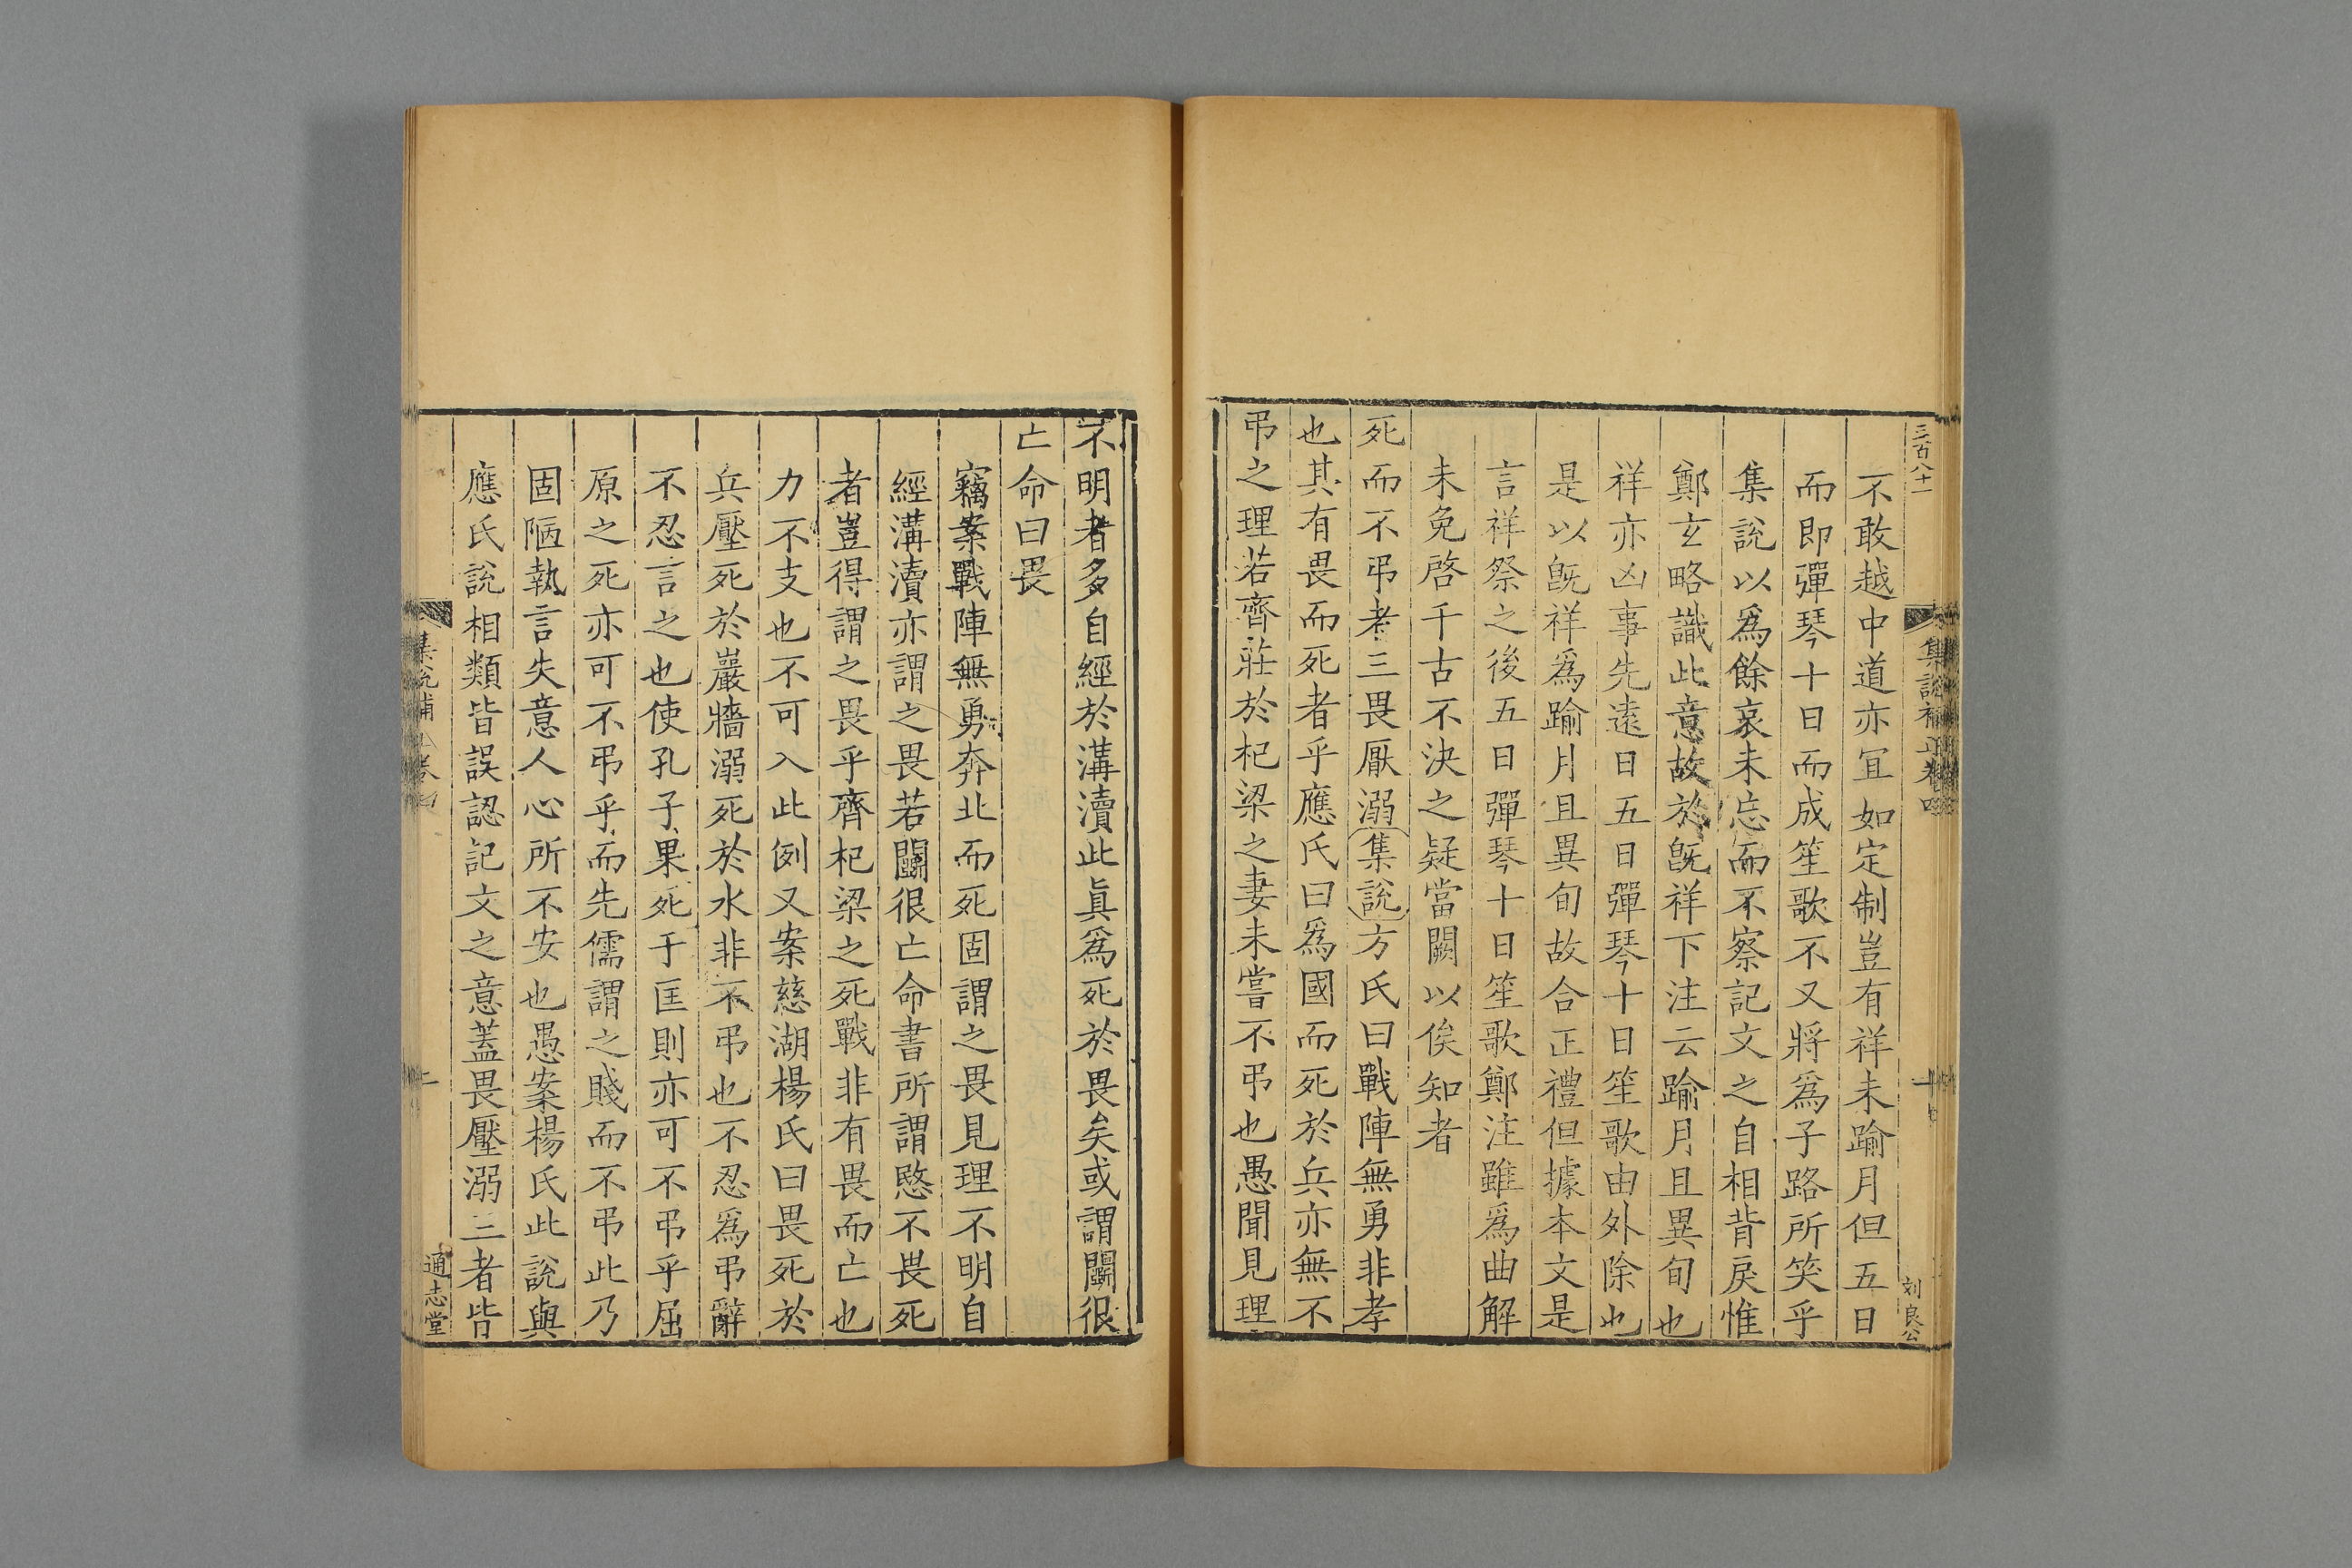 三百八十一
集說補正卷四
十
刘良公
不敢越中道亦宜如定制豈有祥未踰月但五日
而即彈琴十日而成笙歌不又將爲子路所笑乎
集說以爲餘哀未忘而不察記文之自相背戾惟
鄭玄略識此意故於旣祥下注云踰月且異旬也
祥亦凶事先遠日五日彈琴十日笙歌由外除也
是以旣祥爲踰月且異旬故合正禮但據本文是
言祥祭之後五日彈琴十日笙歌鄭注雖爲曲解
未免啓千古不決之疑當闕以俟知者
死而不弔者三畏厭溺集說方氏曰戰陣無勇非孝
也其有畏而死者乎應氏曰爲國而死於兵亦無不
弔之理若齊莊於杞梁之妻未嘗不弔也愚聞見理
不明者多自經於溝瀆此眞爲死於畏矣或謂鬭很
亡命曰畏
竊案戰陣無勇奔北而死固謂之畏見理不明自
經溝瀆亦謂之畏若鬭很亡命書所謂愍不畏死
者豈得謂之畏乎齊杞梁之死戰非有畏而亡也
力不支也不可入此例又案慈湖楊氏曰畏死於
兵壓死於巖牆溺死於水非不弔也不忍爲弔辭
不忍言之也使孔子果死于匡則亦可不弔乎屈
原之死亦可不弔乎而先儒謂之賤而不弔此乃
固陋執言失意人心所不安也愚案楊氏此說與
應氏說相類皆誤認記文之意蓋畏壓溺三者皆
集說補
卷四
通志堂